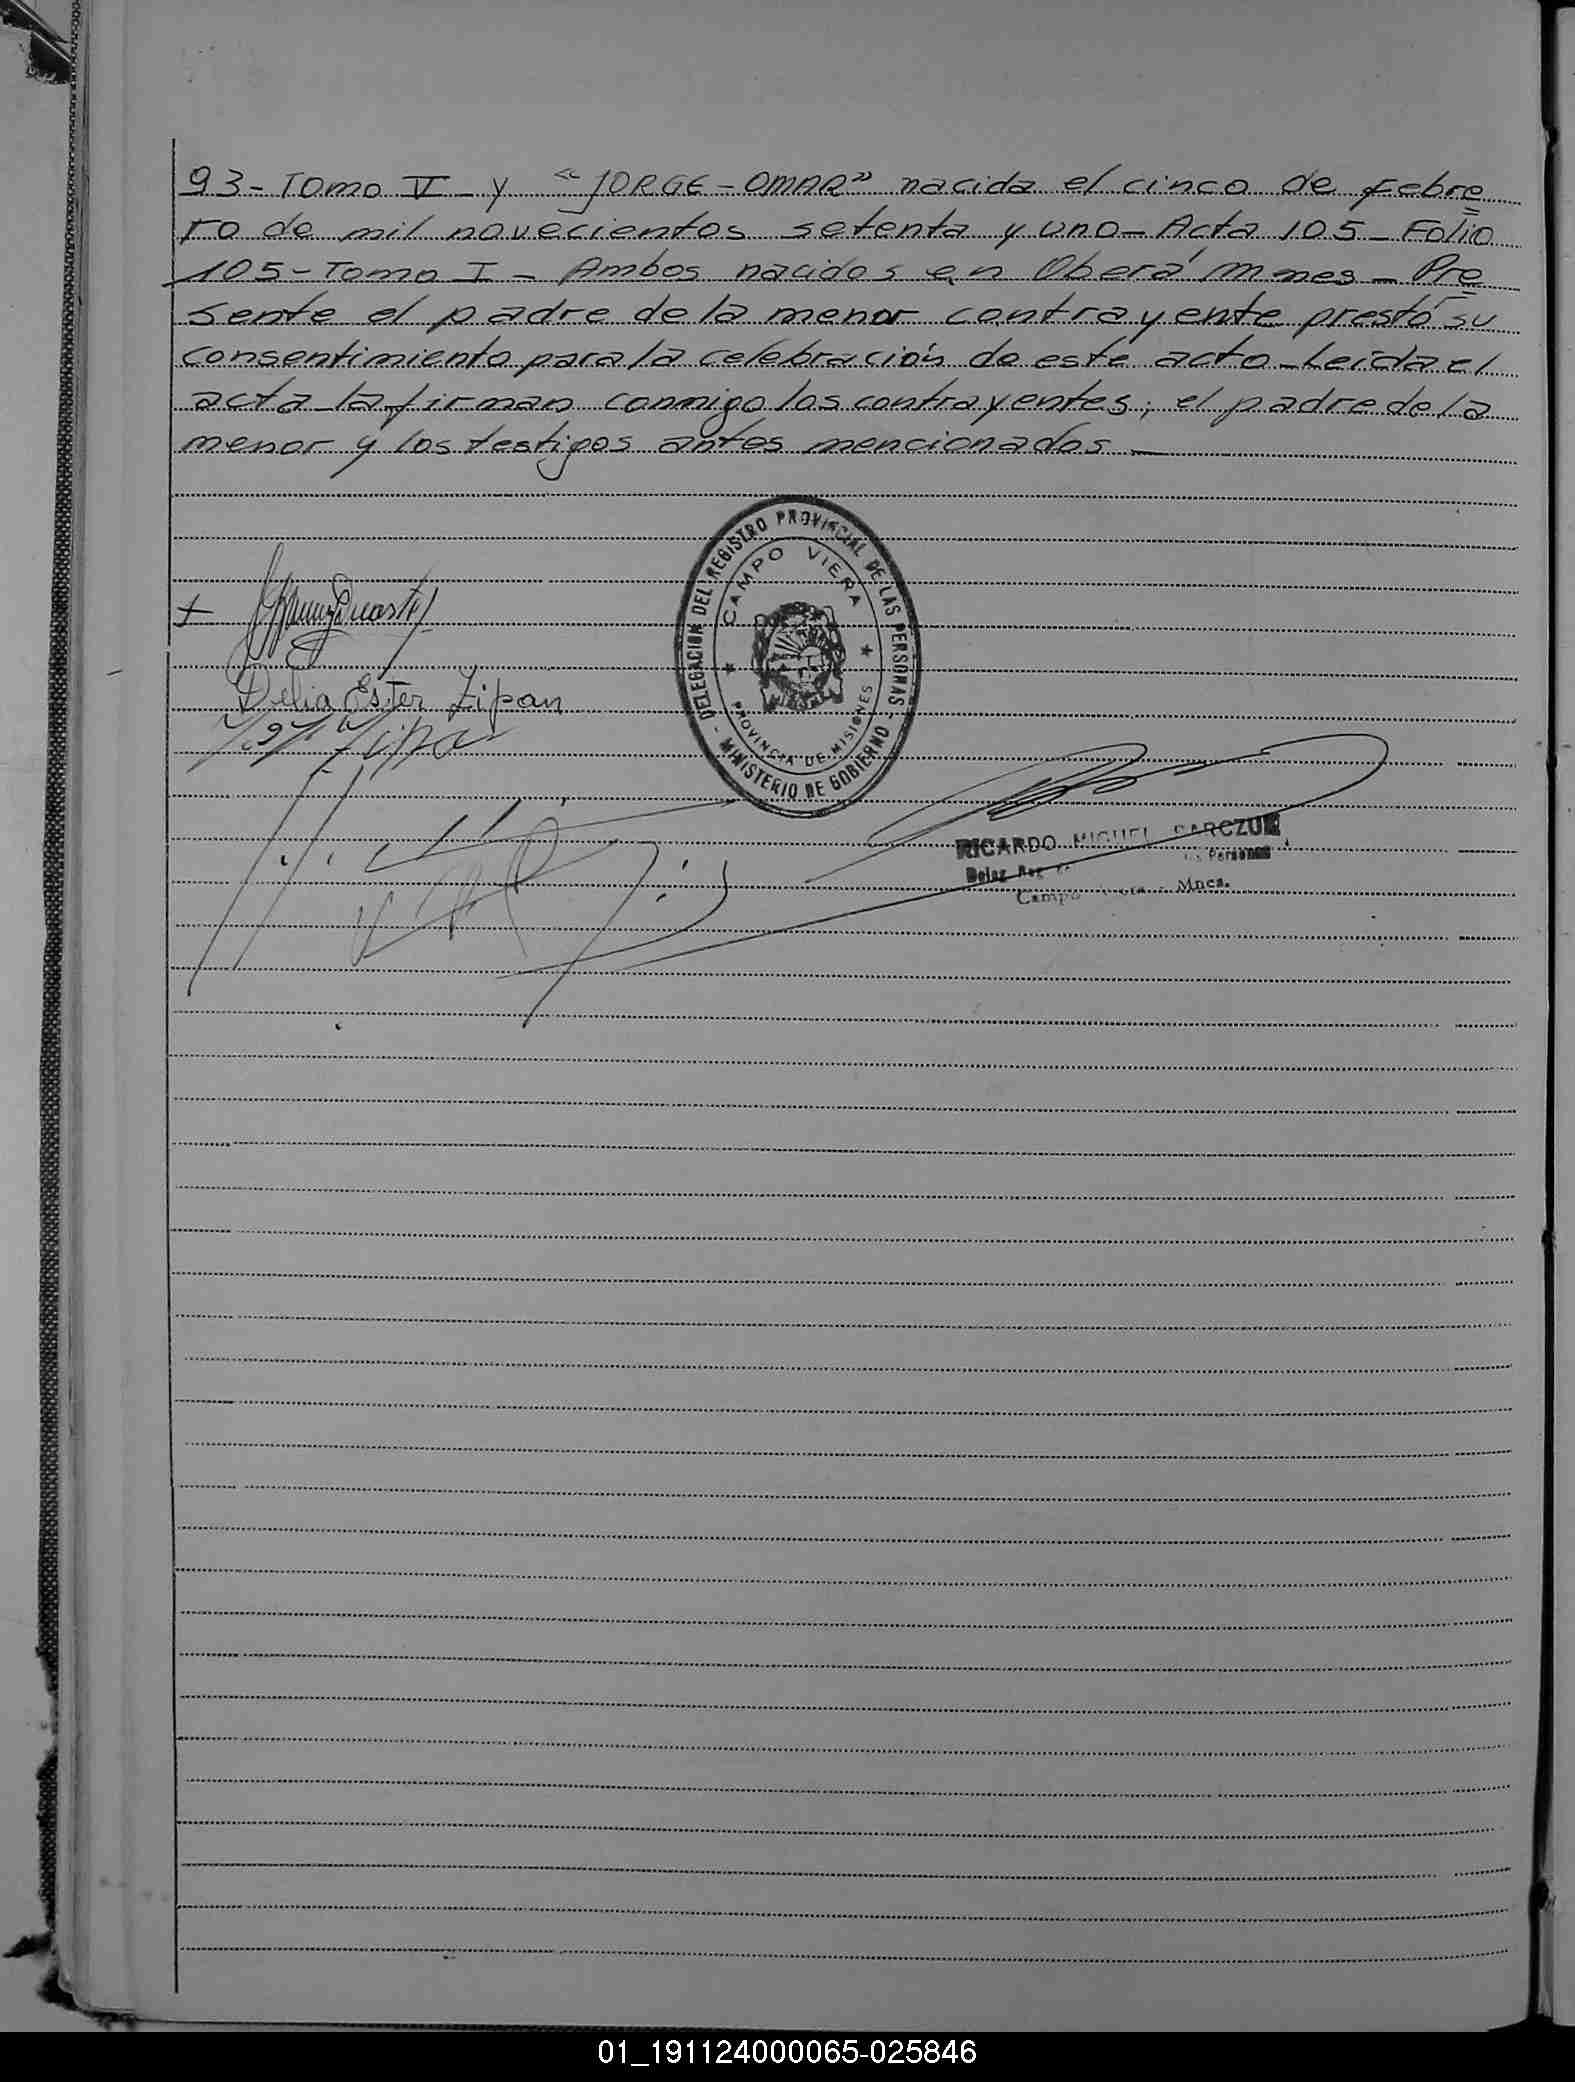 93- Tomo V - y "JORGE - OMAR" nacida el cinco de febre
ro de mil novecientos setenta y uno - Acta 105 - Folio
105 - Tomo I - Ambos nacidos en Oberá Mnes - Pre
sente el padre de la menor contrayente prestó su
consentimiento para la celebración de este acto - Leída el
acta la firman conmigo los contrayentes; el padre de la
menor y los testigos antes mencionados -
DELEGACION DEL REGISTRO PROVINCIAL DE LAS PERSONAS
CAMPO VIERA
PROVINCIA DE MISIONES
- MINISTERIO DE GOBIERNO -
Delia Ester Zipan
RICARDO MIGUEL
Deleg Reg Personas
Campo Mnes.
01_191124000065-025846